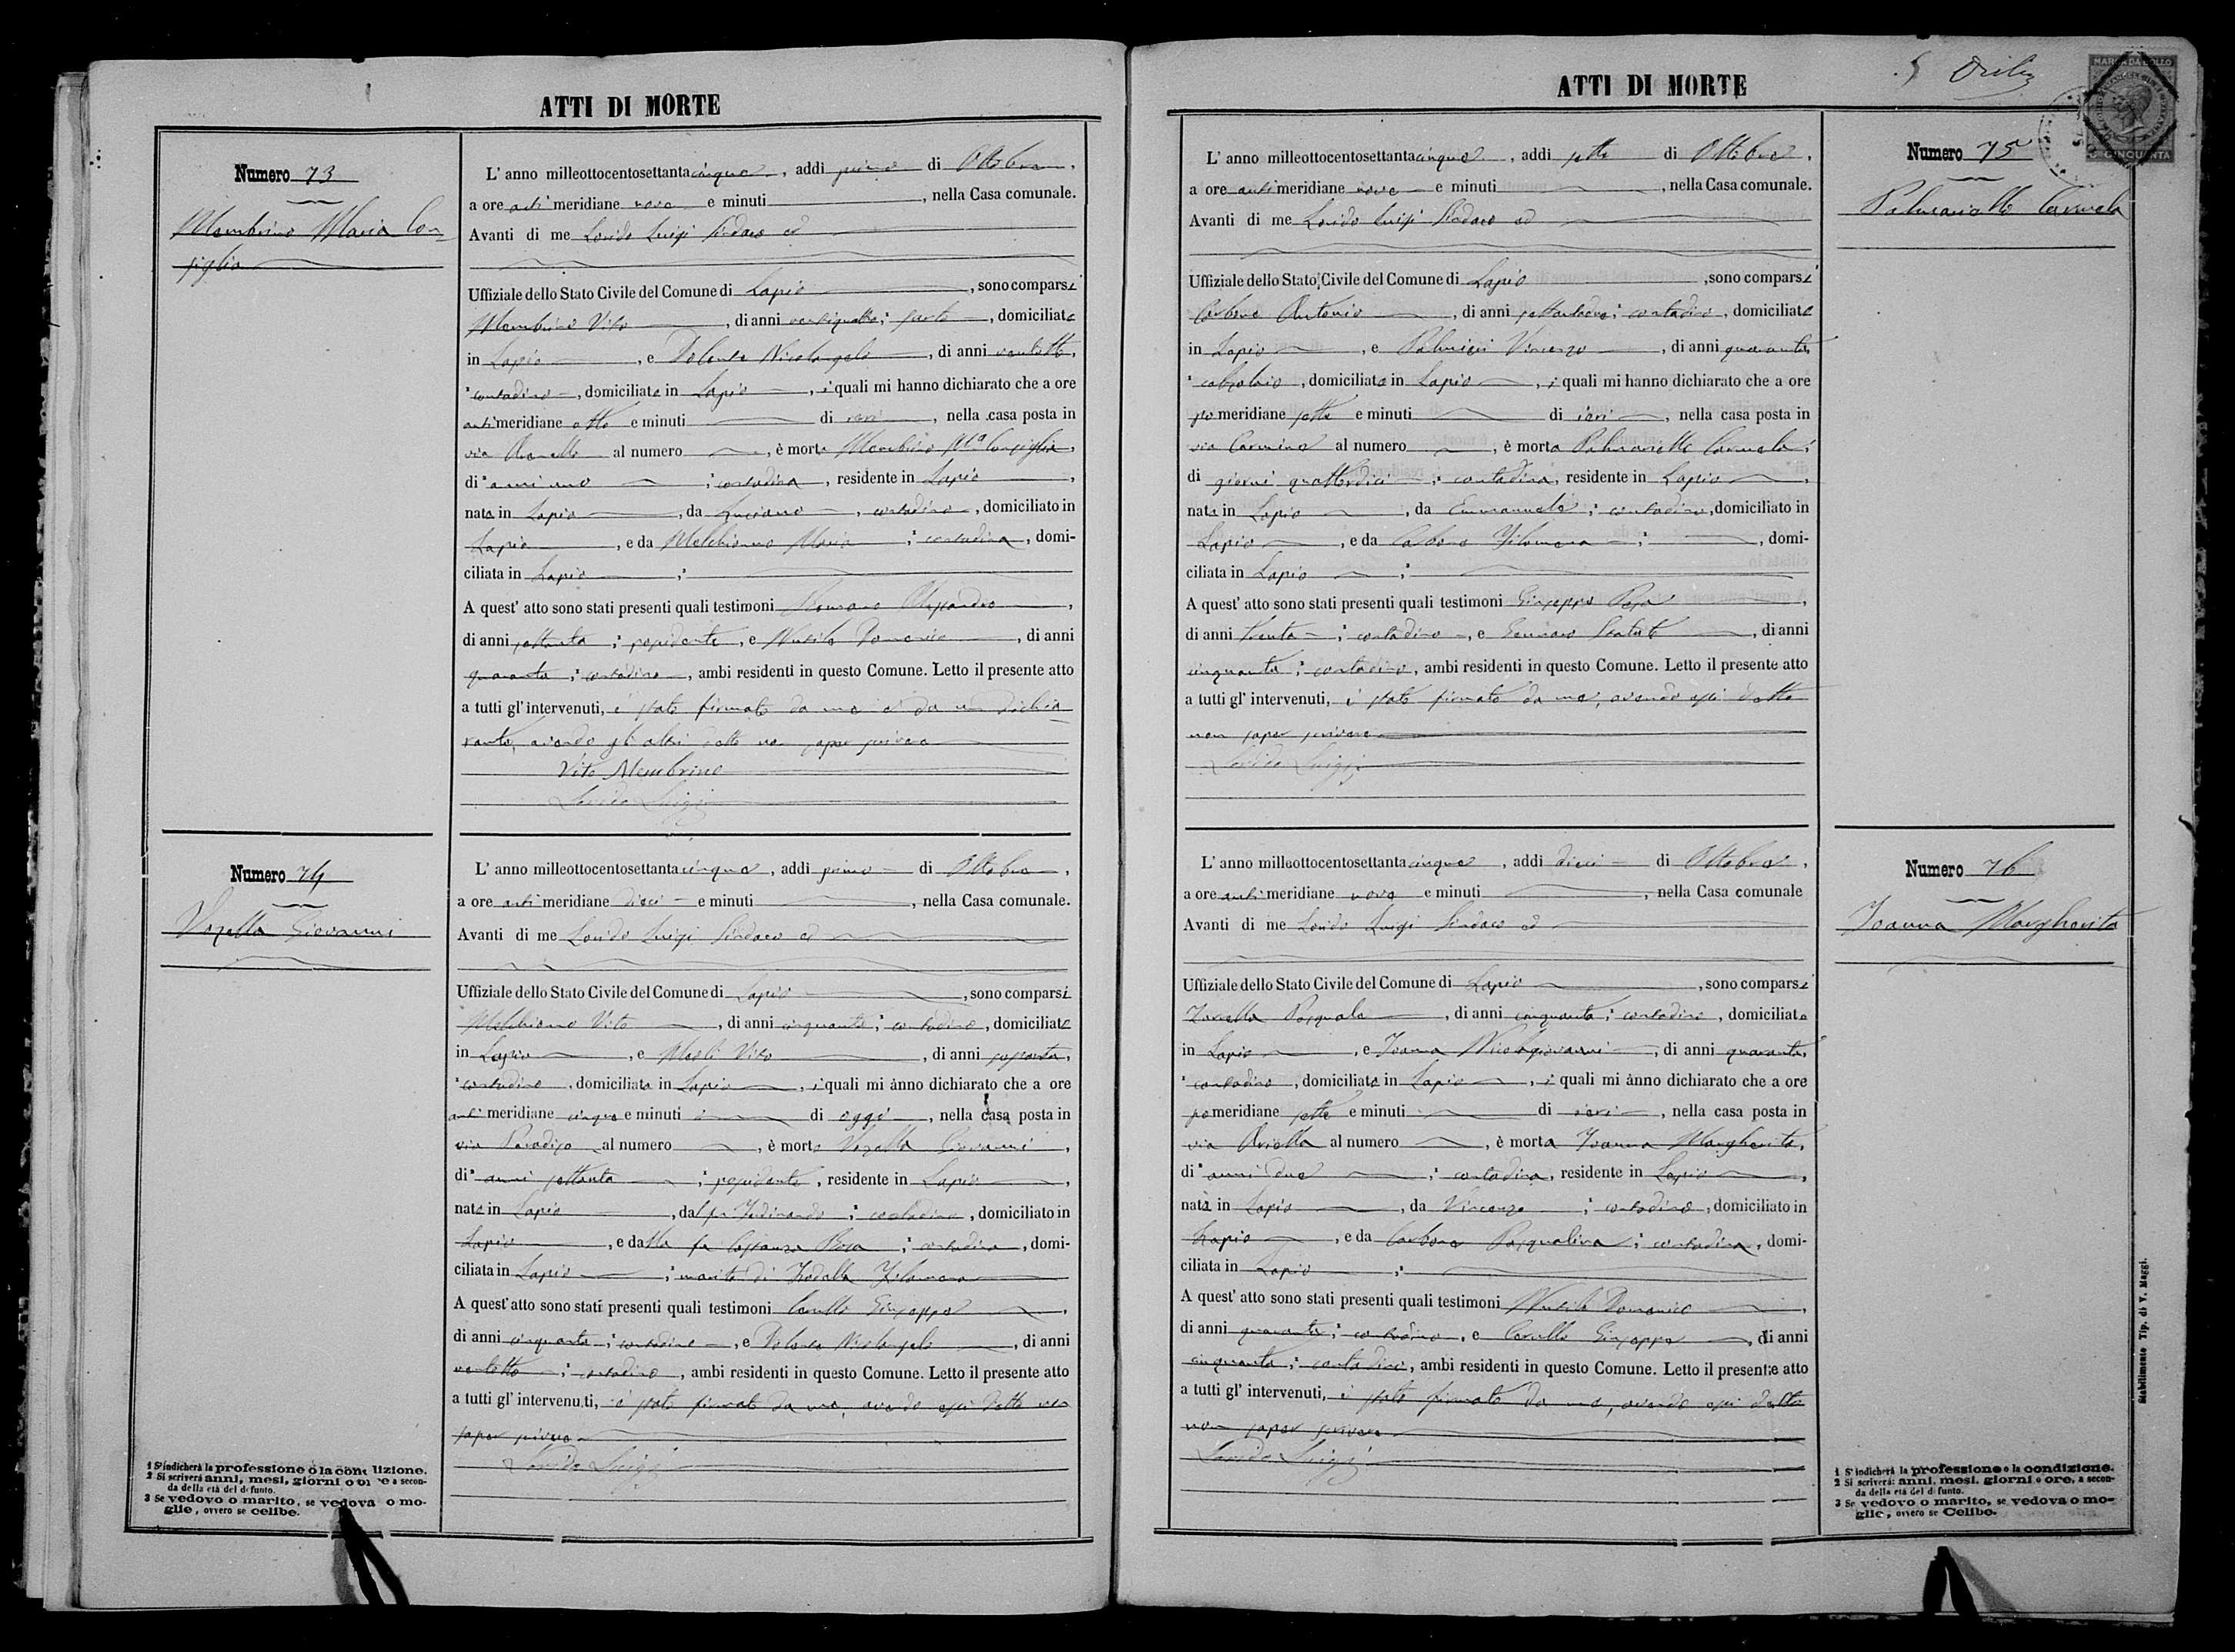 ATTI DI MORTE
Numero 73
Membrino Maria Con-
siglia
L' anno milleottocentosettantacinque, addì primo di Ottobre,
a ore antimeridiane nove e minuti, nella Casa comunale.
Avanti di me Lonido Luigi Sindaco ed
Uffiziale dello Stato Civile del Comune di Lapio, sono comparsi
Membrino Vito, di anni ventiquattro; sarto, domiciliato
in Lapio, e Dolenza Nicolangelo, di anni ventotto,
contadino, domiciliato in Lapio, i quali mi hanno dichiarato che a ore
antimeridiane otto e minuti di ieri, nella casa posta in
via al numero, è morta Membrino Ma Consiglia,
di anni uno; contadina, residente in Lapio,
nata in Lapio, da Luciano, contadino, domiciliato in
Lapio, e da Melchionno Maria; contadina, domi-
ciliata in Lapio;
A quest' atto sono stati presenti quali testimoni Romano Alessandro,
di anni settanta; possidente, e Musilo Domenico, di anni
quaranta; contadino, ambi residenti in questo Comune. Letto il presente atto
a tutti gl' intervenuti, è stato firmato da me e da un dichia-
rante, avendo gli altri detto non saper scrivere
Vito Membrino
Lonido Luigi
Numero 74
Vozella Giovanni
L' anno milleottocentosettantacinque, addì primo di Ottobre,
a ore antimeridiane dieci e minuti, nella Casa comunale.
Avanti di me Lonido Luigi Sindaco ed
Uffiziale dello Stato Civile del Comune di Lapio, sono comparsi
Melchionno Vito, di anni cinquanta; contadino, domiciliato
in Lapio, e Meoli Vito, di anni sessanta,
contadino, domiciliato in Lapio, i quali mi ànno dichiarato che a ore
antimeridiane cinque e minuti di oggi, nella casa posta in
via Paradiso al numero, è morto Vozella Giovanni,
di anni settanta; possidente, residente in Lapio,
nato in Lapio, dal fu Ferdinando; contadino, domiciliato in
Lapio, e dalla fu Costanza Rosa; contadina, domi-
ciliata in Lapio; marito di Filomena
A quest' atto sono stati presenti quali testimoni Carullo Giuseppe,
di anni cinquanta; contadino, e Dolenza Nicolangelo, di anni
ventotto; contadino, ambi residenti in questo Comune. Letto il presente atto
a tutti gl' intervenuti, è stato firmato da me, avendo essi detto non
saper scrivere
Lonido Luigi
1 S'indicherà la professione o la condizione.
2 Si scriverà anni, mesi, giorni o ore a secon-
da della età del defunto.
3 Se vedovo o marito, se vedova o mo-
glie, ovvero se celibe.
ATTI DI MORTE
MARCA DA BOLLO
CINQUANTA
Numero 75
Palmariello Carmela
L' anno milleottocentosettantacinque, addì sette di Ottobre,
a ore antimeridiane nove e minuti, nella Casa comunale.
Avanti di me Lonido Luigi Sindaco ed
Uffiziale dello Stato Civile del Comune di Lapio, sono comparsi
Carbone Antonio, di anni; contadino, domiciliato
in Lapio, e Palmieri Vincenzo, di anni quaranta,
calzolaio, domiciliato in Lapio, i quali mi hanno dichiarato che a ore
pomeridiane sette e minuti di ieri, nella casa posta in
via Carmine al numero, è morta Palmariello Carmela;
di giorni quattordici; contadina, residente in Lapio,
nata in Lapio, da Emmanuele; contadino, domiciliato in
Lapio, e da Carbone Filomena;, domi-
ciliata in Lapio;
A quest' atto sono stati presenti quali testimoni Giuseppe Rosa,
di anni trenta; contadino, e Gennaro, di anni
cinquanta; contadino, ambi residenti in questo Comune. Letto il presente atto
a tutti gl' intervenuti, è stato firmato da me, avendo essi detto
non saper scrivere
Lonido Luigi
Numero 76
Ioanna Margherita
L' anno milleottocentosettantacinque, addì dieci di Ottobre,
a ore antimeridiane nove e minuti, nella Casa comunale
Avanti di me Lonido Luigi Sindaco ed
Uffiziale dello Stato Civile del Comune di Lapio, sono comparsi
Pasquale, di anni cinquanta; contadino, domiciliato
in Lapio, e Ioanna Nicolagiovanni, di anni quaranta,
contadino, domiciliato in Lapio, i quali mi ànno dichiarato che a ore
pomeridiane sette e minuti di ieri, nella casa posta in
via Ariella al numero, è morta Ioanna Margherita,
di anni due; contadina, residente in Lapio,
nata in Lapio, da Vincenzo; contadino, domiciliato in
Lapio, e da Carbone Pasqualina; contadina, domi-
ciliata in Lapio;
A quest' atto sono stati presenti quali testimoni Musilo Domenico,
di anni quaranta; contadino, e Carullo Giuseppe, di anni
cinquanta; contadino, ambi residenti in questo Comune. Letto il presente atto
a tutti gl' intervenuti, è stato firmato da me, avendo essi detto
non saper scrivere
Lonido Luigi
1 S'indicherà la professione o la condizione.
2 Si scriverà: anni, mesi, giorni o ore, a secon-
da della età del defunto.
3 Se vedovo o marito, se vedova o mo-
glie, ovvero se Celibe.
Stabilimento Tip. di V. Maggi.